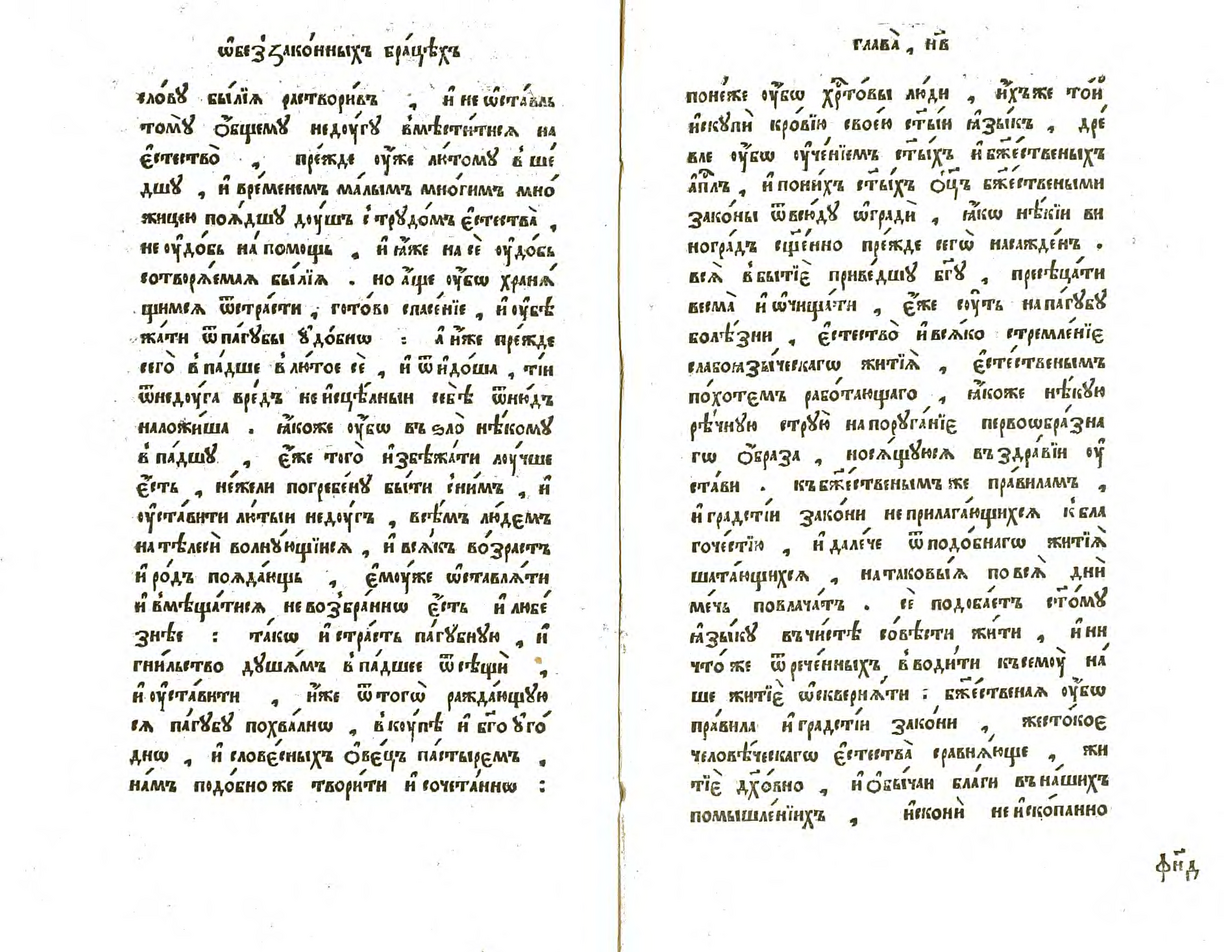 ѡ҆беззако́нныхъ бра́цѣхъ
сло́вꙋ бы́лїѧ растворивъ , и҆ не ѡ҆ста́вль
томꙋ̀ ѻ҆́бщемꙋ недоу́гꙋ вмѣсти́тисѧ на
є҆стество̀ , пре́жде оу҆́же лю́томꙋ в̾ше
дшꙋ , и҆ вре́менемъ ма́лымъ мно́гимъ мно́
жицею поѧ́дшꙋ доу́шъ с̾трꙋдо́мъ є҆стества̀ ,
не оу҆до́бь на́помощь , и҆ ꙗ҆́же на сѐ оу҆до́бь
сотворѧ́емаѧ бы́лїѧ . но а҆́ще оу҆́бѡ хранѧ́
щимсѧ ѿстра́сти , гото́во спасе́нїе , и҆ оу҆бѣ
жа́ти ѿпа́гꙋбы ᲂу҆до́бнѡ : а҆ и҆́же пре́жде
сего̀ в̾па́дше в̾лю́тое сѐ , и҆ ѿидо́ша , ті́и
ѿнедоу́га вре́дъ не и҆сцѣ́лныи себѣ̀ ѿню́дъ
наложи́ша . ꙗ҆́коже оу҆́бѡ въ ѕло̀ нѣ́комꙋ
в̾па́дшꙋ , є҆́же того̀ и҆збѣжа́ти лоу́чше
є҆́сть , не́жели погребе́нꙋ бы́ти с̾ни́мъ , и҆
оу҆ста́вити лю́тыи недоу́гъ , всѣ́мъ лю́демъ
на тѣ́леси волнꙋ́ющїисѧ , и҆ всѧ́къ во́зрастъ
и҆ ро́дъ поѧда́ющь , є҆моу́же ѡ҆ставлѧ́ти
и҆ вмѣща́тисѧ невозбра́ннѡ є҆́сть и҆ любе́
знѣе : та́кѡ и҆ стра́сть па́гꙋбнꙋю , и҆
гни́льство дꙋша́мъ в̾па́дшее ѿсѣщѝ ,
и҆ оу҆ста́вити , и҆́же ѿтогѡ̀ ражда́ющꙋю
сѧ па́гꙋбꙋ похва́лнѡ , в̾коу́пѣ и҆ бг҃о ᲂу҆го́
днѡ , и҆ слове́сныхъ ѻ҆ве́цъ па́стыремъ ,
на́мъ подо́бно же твори́ти и҆ сочета́ннѡ :
глава̀ , н҃в
поне́же оу҆́бѡ хрⷭ҇то́вы лю́ди , и҆́хъже то́и
и҆скꙋпѝ кро́вїю свое́ю ст҃ы́и ꙗ҆зы́къ , дре́
вле оу҆́бѡ оу҆че́нїемъ ст҃ы́хъ и҆ бж҃е́ственыхъ
а҆пⷭ҇лъ , и҆ пони́хъ ст҃ы́хъ ѻ҆ц҃ъ бж҃е́ствеными
зако́ны ѿвсю́дꙋ ѡ҆гради́ , ꙗ҆́кѡ нѣ́кїи ви
ногра́дъ сщ҃е́нно пре́жде сегѡ̀ насажде́нъ .
всѧ̀ в̾бытїѐ приве́дшꙋ бг҃ꙋ , пресѣца́ти
весма̀ и҆ ѡ҆чища́ти , є҆́же соу́ть на па́гꙋбꙋ
болѣ́зни , є҆стество̀ и҆ всѧ́ко стремле́нїе
слабоꙗзы́ческагѡ житїѧ̀ , є҆сте́ственымъ
по́хотемъ рабо́тающаго , ꙗ҆́коже нѣ́кꙋю
рѣ́чнꙋю стрꙋю̀ на порꙋга́нїе первоѡбра́зна
гѡ ѻ҆́браза , носѧ́щꙋюсѧ въ здра́вїи оу҆
ста́ви . къ бж҃е́ственымъ же пра́виламъ ,
и҆ гра́дстїи зако́ни не прилага́ющихсѧ к̾бла
гоче́стїю , и҆ дале́че ѿподо́бнагѡ житїѧ̀
шата́ющихсѧ , на таковы́ѧ по всѧ̀ днѝ
ме́чь повлача́тъ . сѐ подоба́етъ ст҃о́мꙋ
ꙗ҆зы́кꙋ въ чи́стѣ со́вѣсти жи́ти , и҆ ни
что́ же ѿрече́нныхъ в̾води́ти къ семоу̀ на́
ше житїѐ ѡ҆сквернѧ́ти : бж҃е́ственаѧ оу҆́бѡ
пра́вила и҆ гра́дстїи зако́ни , жесто́кое
человѣ́ческагѡ є҆стества̀ сравнѧ́юще , жи
тїѐ дх҃о́вно , и҆ ѻ҆бы́чаи бла́ги въ на́шихъ
помышле́нїихъ , и҆сконѝ не и҆ско́панно
ф҃н҃д